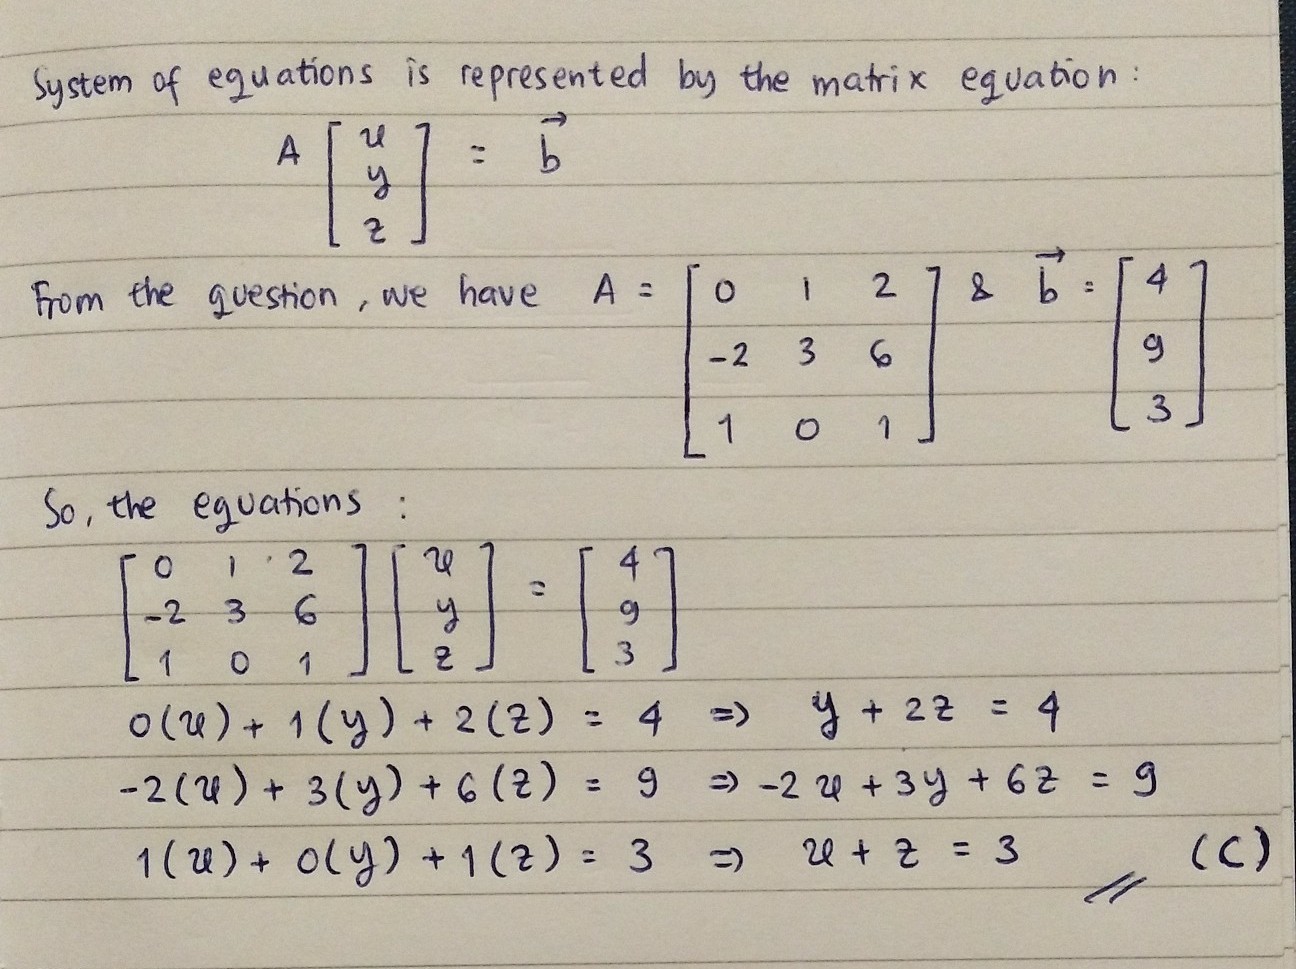 System of equations is represented by the matrix equation:
A [x y z] = b⃗
From the question, we have A = [0 1 2 -2 3 6 1 0 1] & b⃗ = [4 9 3]
So, the equations :
[0 1 2] [x] = [4]
[-2 3 6] [y] [9]
[1 0 1] [z] [3]
0(x) + 1(y) + 2(z) = 4 => y + 2z = 4
-2(x) + 3(y) + 6(z) = 9 => -2x + 3y + 6z = 9
1(x) + 0(y) + 1(z) = 3 => x + z = 3 // (C)